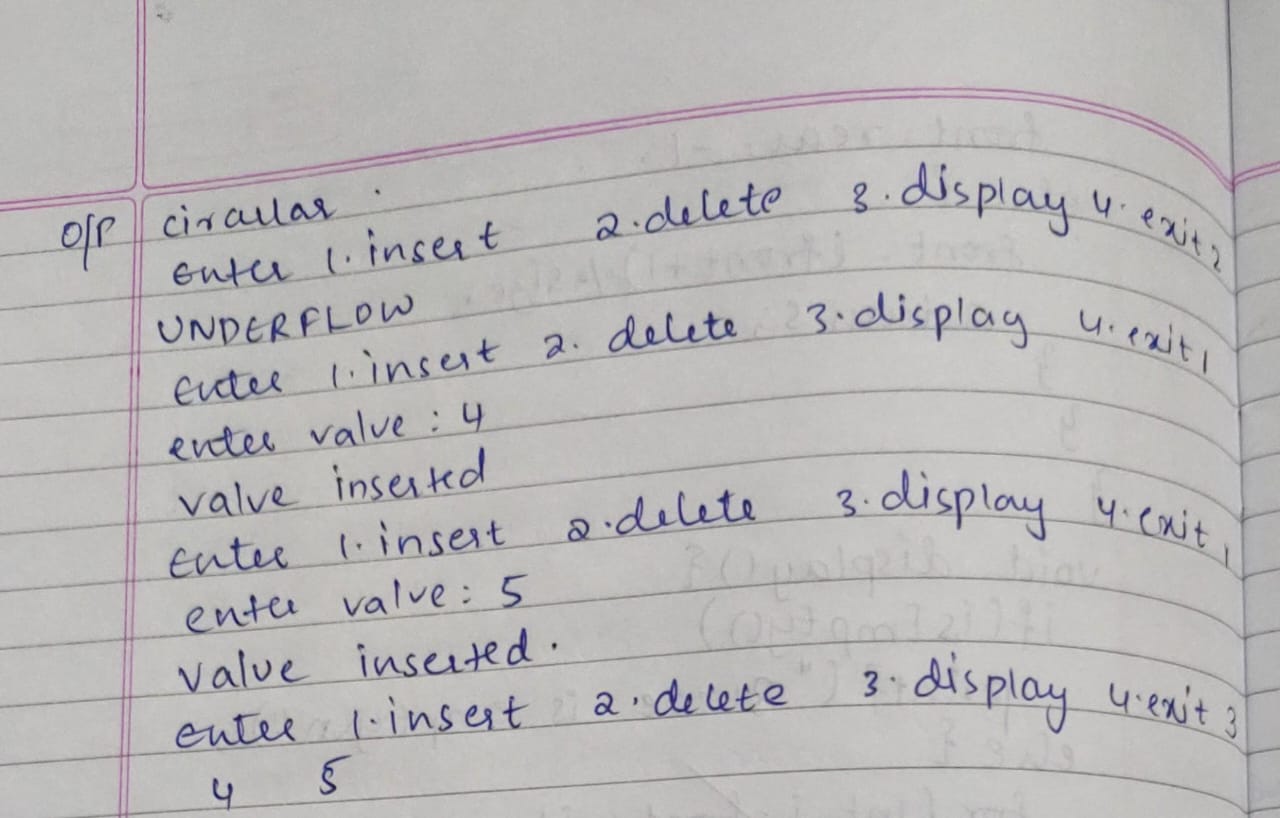 O/P circular.
Enter 1. insert 2. delete 3. display 4. exit 2
UNDERFLOW
Enter 1. insert 2. delete 3. display 4. exit 1
enter value : 4
value inserted
Enter 1. insert 2. delete 3. display 4. exit 1
enter value : 5
value inserted.
enter 1. insert 2. delete 3. display 4. exit 3
4 5